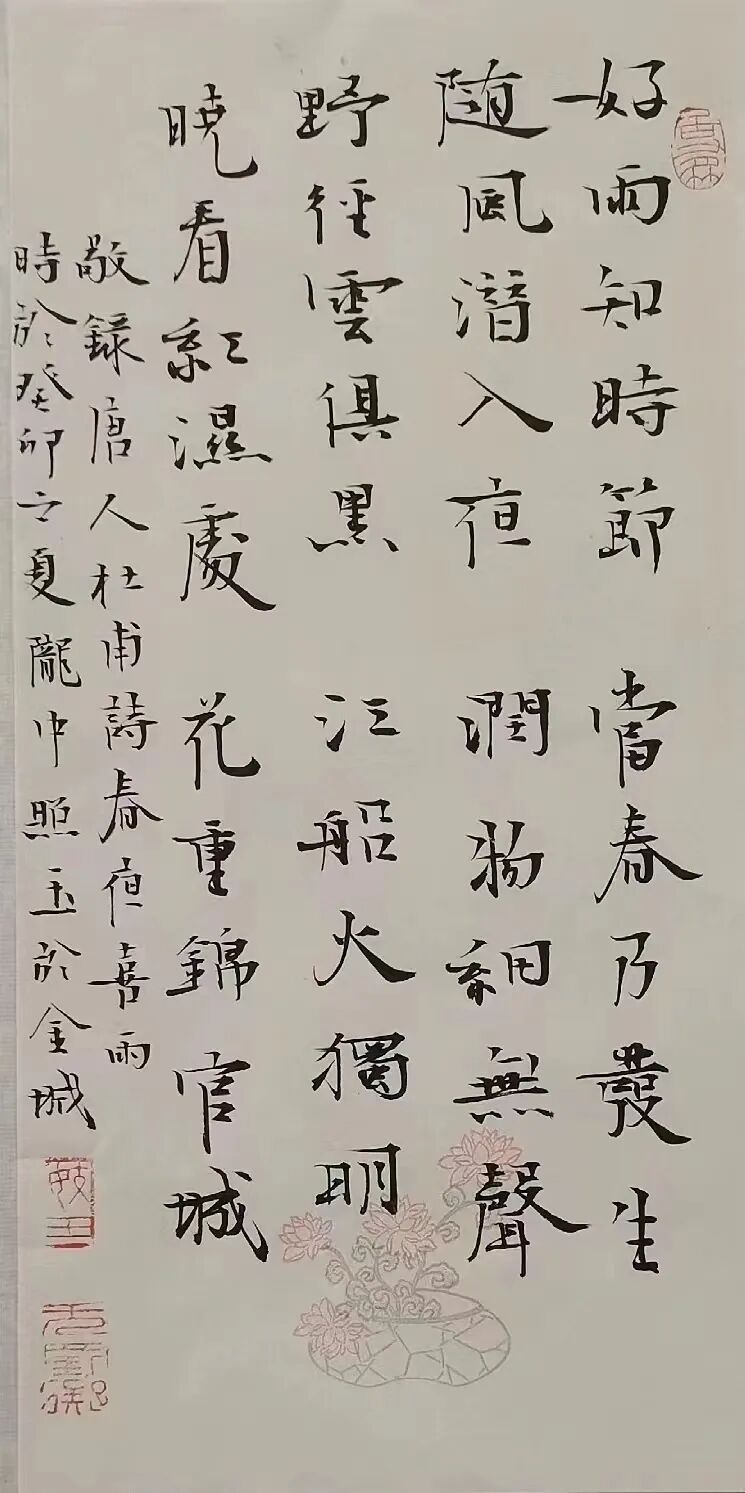 好雨知時節 當春乃發生
随風潛入夜 潤物細無聲
野徑雲俱黑 江船火獨明
曉看紅濕處 花重錦官城
敬録唐人杜甫詩春夜喜雨
時於癸卯之夏隴中照玉於金城